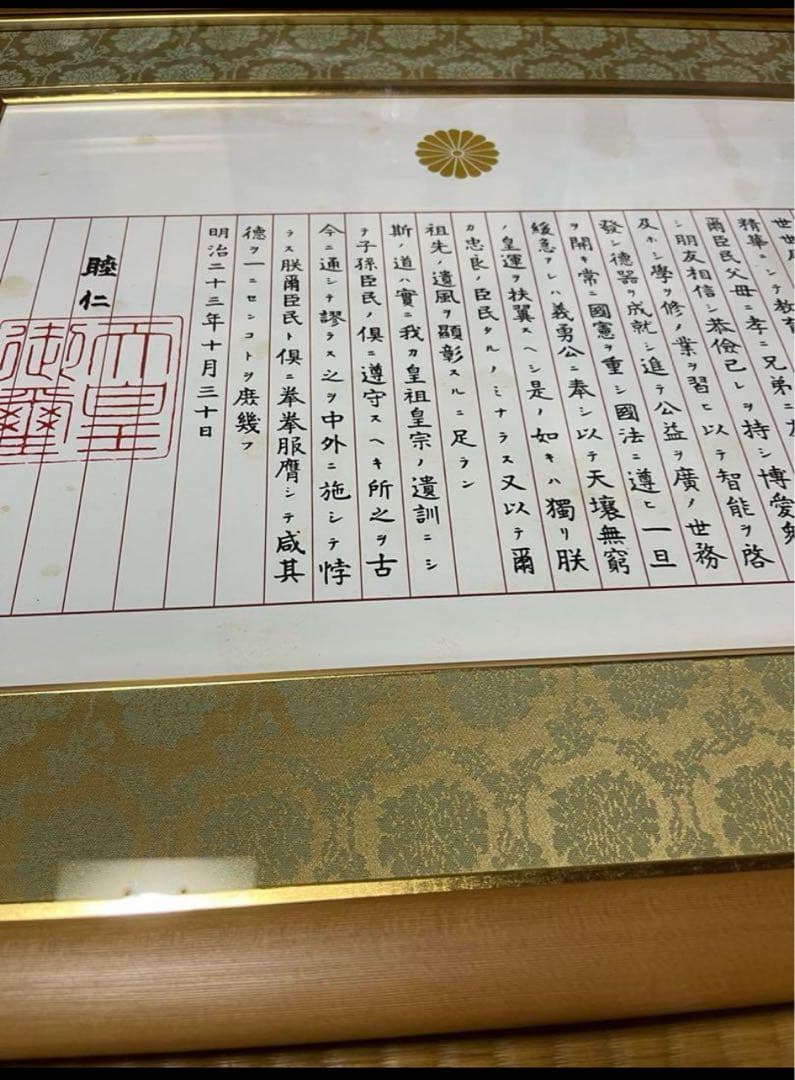 世世
精華ニシテ教育
爾臣民父母ニ孝ニ兄弟ニ
シ朋友相信シ恭儉己レヲ持シ博愛衆
及ホシ學ヲ修メ業ヲ習ヒ以テ智能ヲ啓
發シ德器ヲ成就シ進テ公益ヲ廣メ世務
ヲ開キ常ニ國憲ヲ重シ國法ニ遵ヒ一旦
緩急アレハ義勇公ニ奉シ以テ天壤無窮
ノ皇運ヲ扶翼スヘシ是ノ如キハ獨リ朕
カ忠良ノ臣民タルノミナラス又以テ爾
祖先ノ遺風ヲ顯彰スルニ足ラン
斯ノ道ハ實ニ我カ皇祖皇宗ノ遺訓ニシ
テ子孫臣民ノ俱ニ遵守スヘキ所之ヲ古
今ニ通シテ謬ラス之ヲ中外ニ施シテ悖
ラス朕爾臣民ト俱ニ拳拳服膺シテ咸其
德ヲ一ニセンコトヲ庶幾フ
明治二十三年十月三十日
睦仁
天皇
御璽